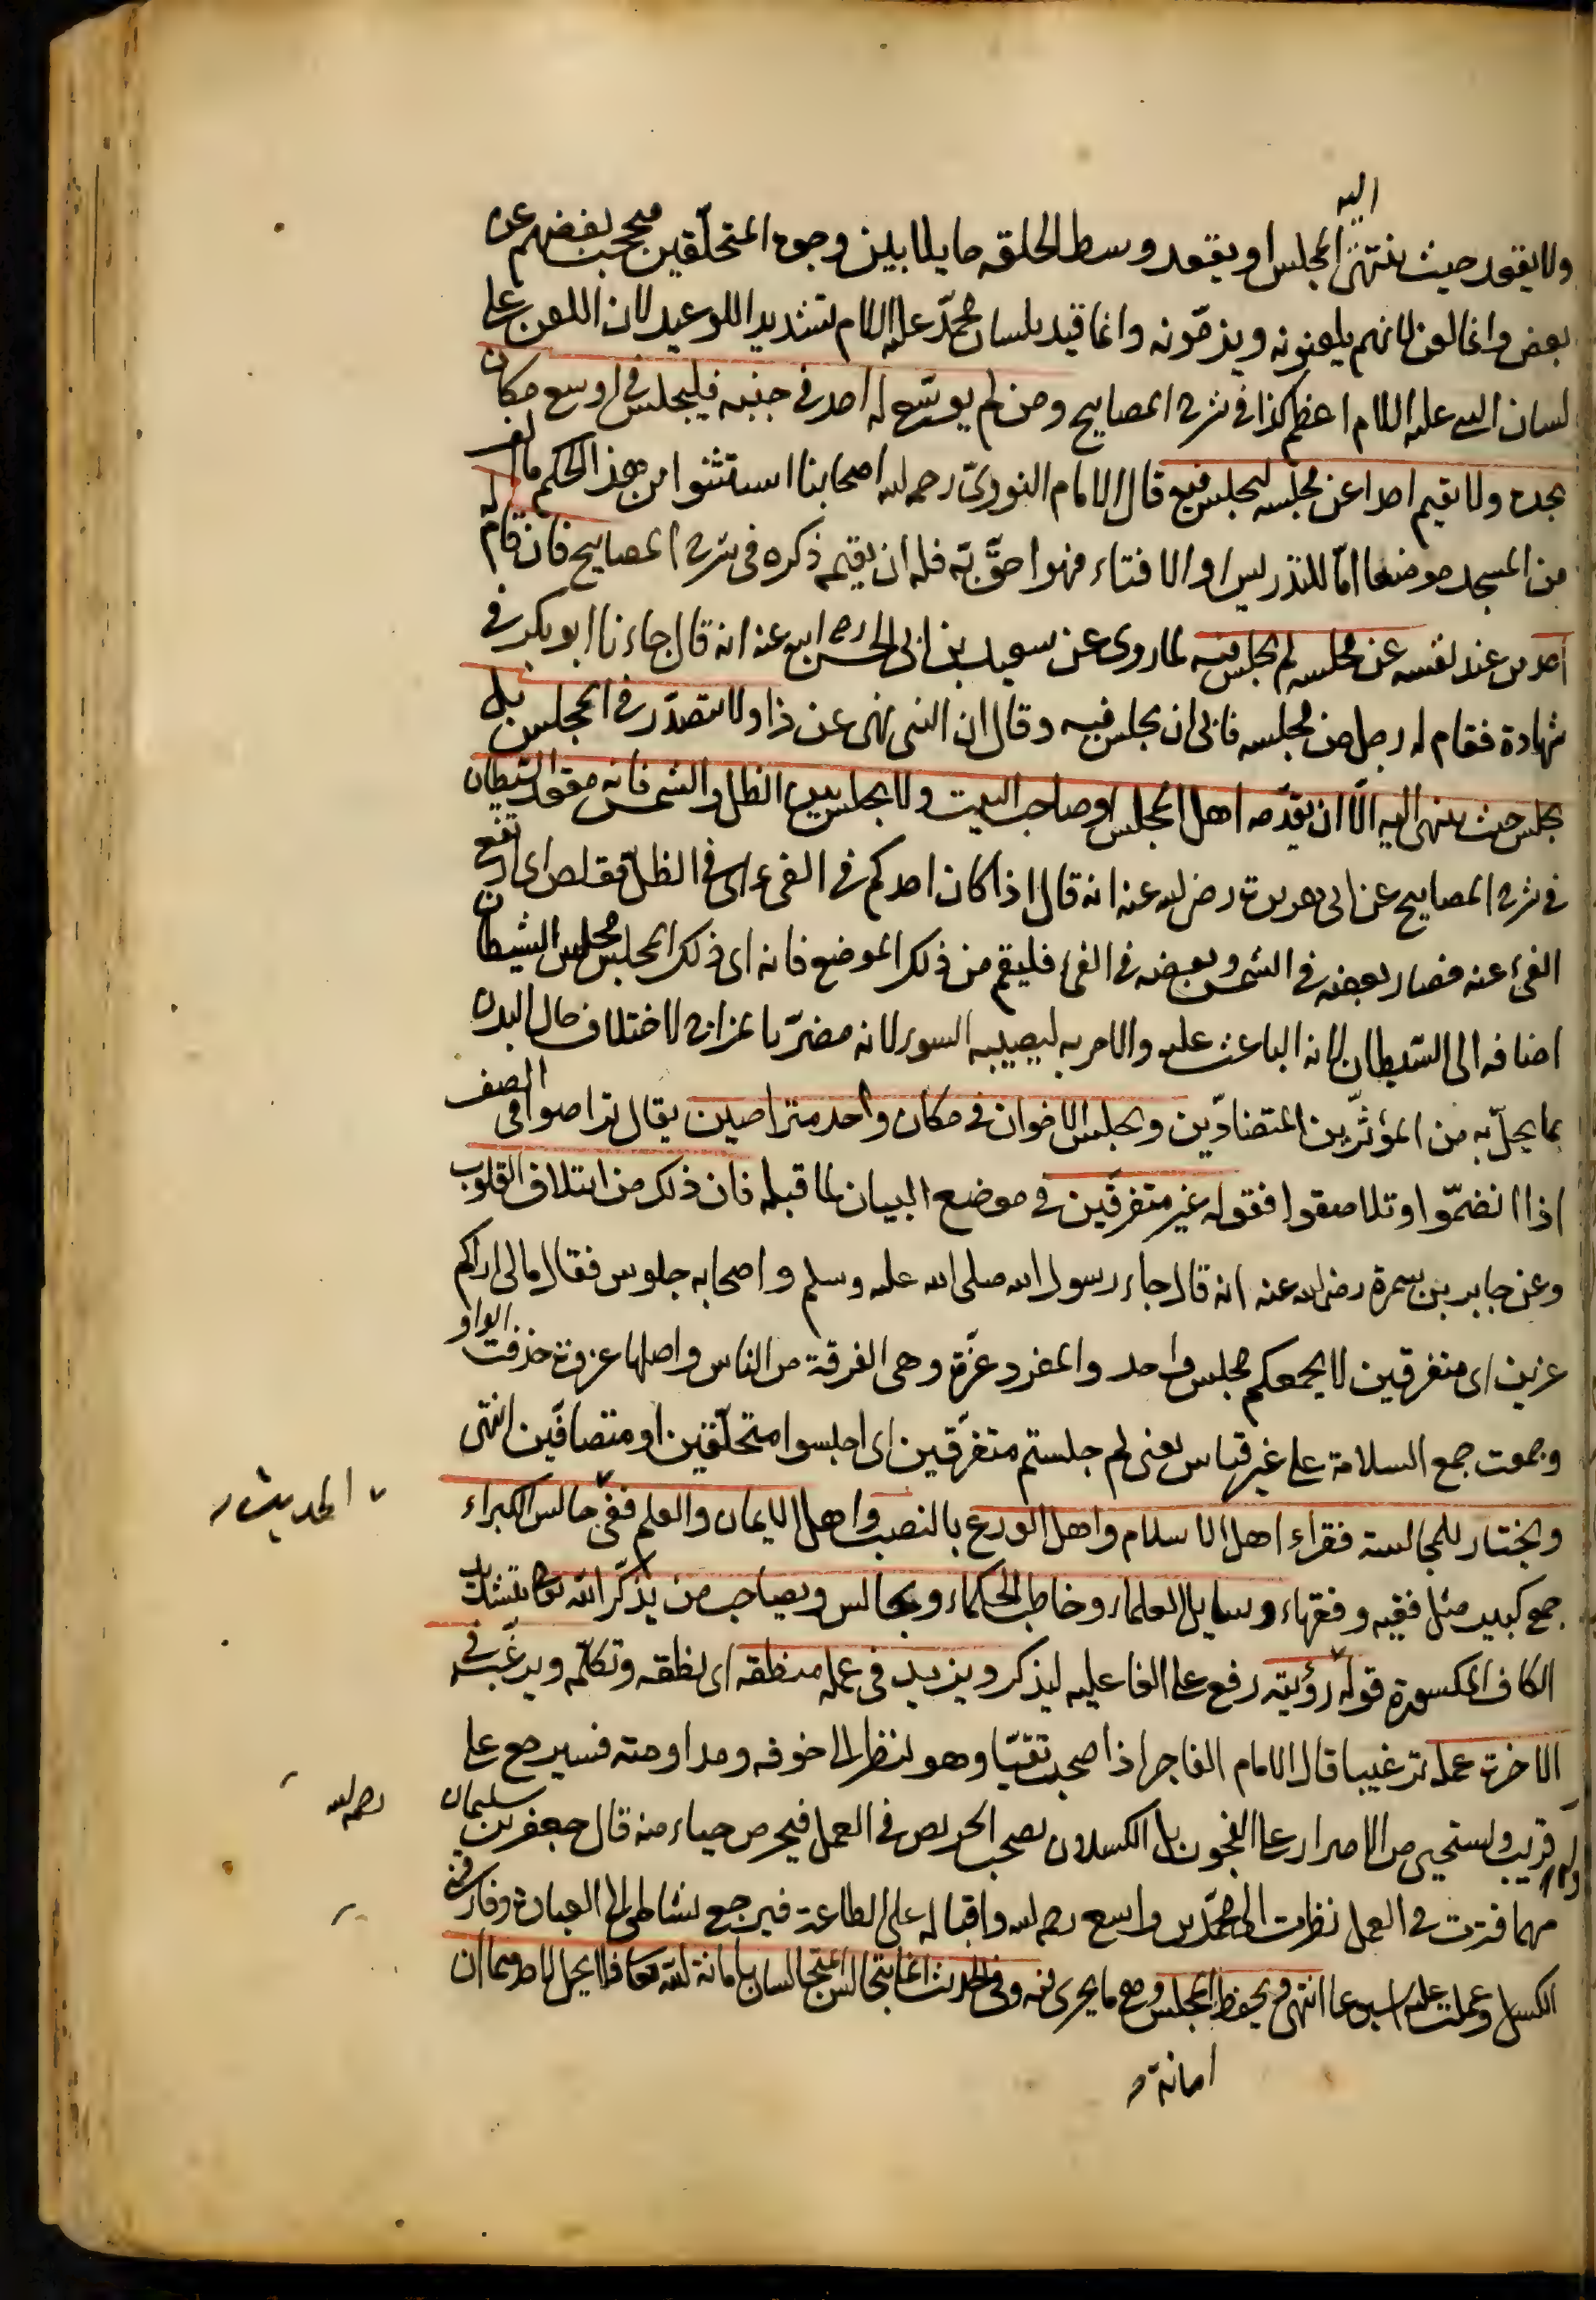 اليه
ولا يقعد حيث ينتهى المجلس او يقعد وسط الحلقه حايلا بين وجوه المتحلّقين فيحجب بعضهم عن
بعض وانما لعن لانهم يلعنونه ويذمّونه وانما قيد بلسان محمّد عليه السلام تشديدا للوعيد لان اللعن على
لسان النبى عليه السلام اعظم كذا فى شرح المصابيح ومن لم يوسّع له احد فى جنبه فليجلس فى اوسع مكان
يجده ولا يقيم احدا عن مجلسه ليجلس فيه قال الامام النووىّ رحمه الله اصحابنا استثنوا من هذا الحكم ما الف
من المسجد موضعا امّا للتدريس او الافتاء فهو احقّ به فله ان يقيمه ذكره فى شرح المصابيح فان قام له
احد من عند نفسه عن مجلسه لم يجلس فيه لما روى عن سعيد بن ابى الحسن رضى الله عنه انه قال جاءنا ابو بكر فى
شهادة فقام له رجل من مجلسه فابى ان يجلس فيه وقال ان النبى نهى عن ذا ولا يتصدّر فى المجلس بل
يجلس حيث ينتهى اليه الّا ان يقدّمه اهل المجلس او صاحب البيت ولا يجلس بين الظل والشمس فانه مقعد الشيطان
فى شرح المصابيح عن ابى هريرة رضى الله عنه انه قال اذا كان احدكم فى الفىء اى فى الظل فقلص اى ارتفع
الفىء عنه فصار بعضه فى الشمس وبعضه فى الفىء فليقم من ذلك الموضع فانه اى ذلك المجلس مجلس الشيطان
اضافه الى الشيطان لانه الباعث عليه والامر به ليصيبه السوء لانه مضرّ بالمزاج لاختلاف حال البدن
بما يحلّ به من المؤثّرين المتضادّين ويجلس الاخوان فى مكان واحد متراصين يقال تراصوا فى الصف
اذا انضمّوا وتلاصقوا فقوله غير متفرقين فى موضع البيان لما قبله فان ذلك من ائتلاف القلوب
وعن جابر بن سمرة رضى الله عنه انه قال جاء رسول الله صلى الله عليه وسلم واصحابه جلوس فقال مالى اراكم
عزين اى متفرقين لا يجمعكم مجلس واحد والمفرد عزة وهى الفرقة من الناس واصلها عزوة حذفت الواو
وجمعت جمع السلامة على غير قياس يعنى لم جلستم متفرّقين اى اجلسوا متحلّقين او متصافّين انتهى
ويختار للمجالسة فقراء اهل الاسلام واهل الورع بالنصب واهل الايمان والعلم ففى جالس الكبراء
الحديث
جمع كبير مثل فقيه وفقهاء وسايل العلماء وخاطب الحكماء ويجالس ويصاحب من يذكّر الله تعالى بتشديد
الكاف المكسورة قوله رؤيته رفع على الفاعليه ليذكر ويزيد فى عمله منطقه اى نطقه وتكلّمه ويرغّبه فى
الاخرة عمله ترغيبا قال الامام الفاجر اذا صحب تقيّا وهو ينظر الى خوفه ومداومته فسيرجع على
قريب ويستحيى من الاصرار على الفجور بل الكسلان يصحب الحريص فى العمل فيحرص حياء منه قال جعفر بن سليمان
رحمه الله
مهما فترت فى العمل نظرت الى محمّد بن واسع رحمه الله واقباله على الطاعة فيرجع نشاطى الى العبادة وفارقنى
الكسل وعملت عليه اسبوعا انتهى ويحفظ المجلس وهو ما يجرى فيه وفى الحديث انما يتجالس المتجالسان بامانة الله تعالى فلا يحل لاحدهما ان
امانة